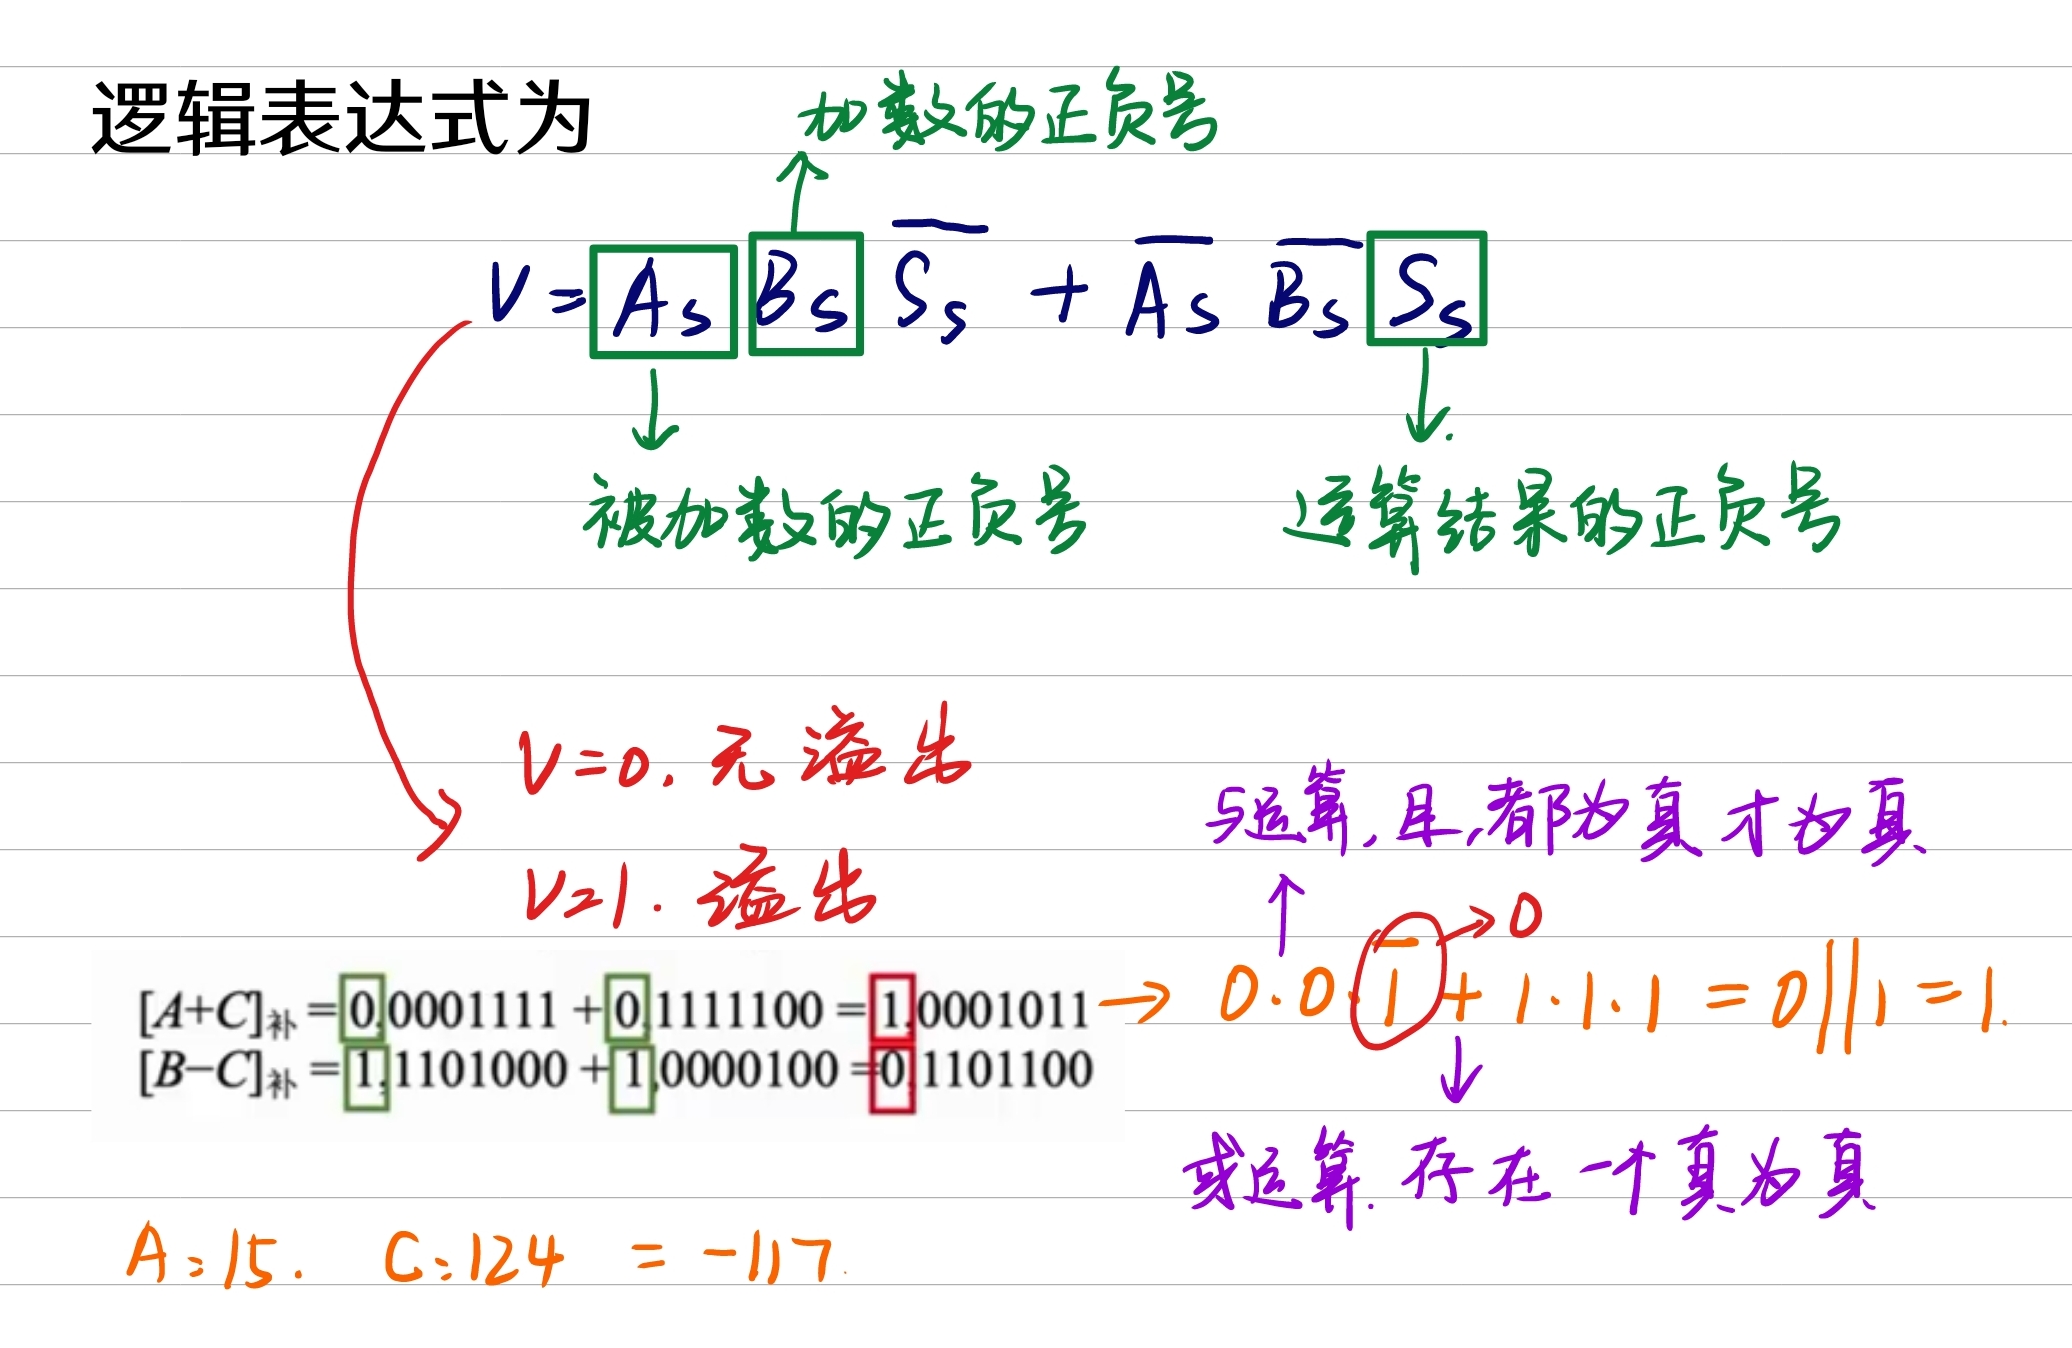 逻辑表达式为
加数的正负号
V = As Bs S̅s̅ + A̅s̅ B̅s̅ Ss
被加数的正负号
运算结果的正负号
V=0. 无溢出
V=1. 溢出
与运算,且,都为真才为真
→0
[A+C]补 = 0,0001111 + 0,1111100 = 1,0001011 → 0·0·1̅ + 1·1·1 = 0||1 = 1.
[B−C]补 = 1,1101000 + 1,0000100 = 0,1101100
或运算.存在一个真为真
A:15. C:124 = -117.